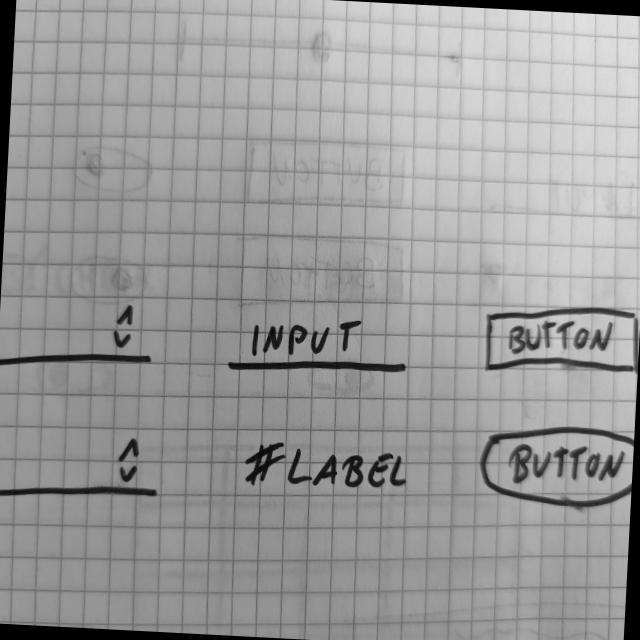 INPUT BUTTON
#LABEL BUTTON